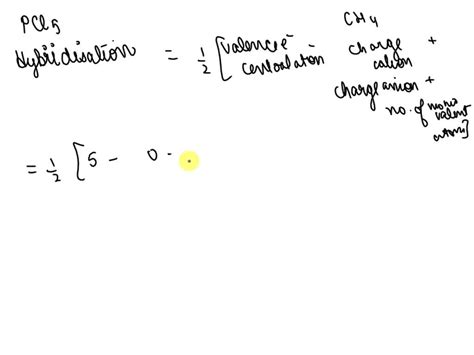 PCl5 CH4
Hybridisation = 1/2 [valence e- charge +
central atom cation
charge anion +
no. of mono
valent
atoms]
= 1/2 [5 - 0 -